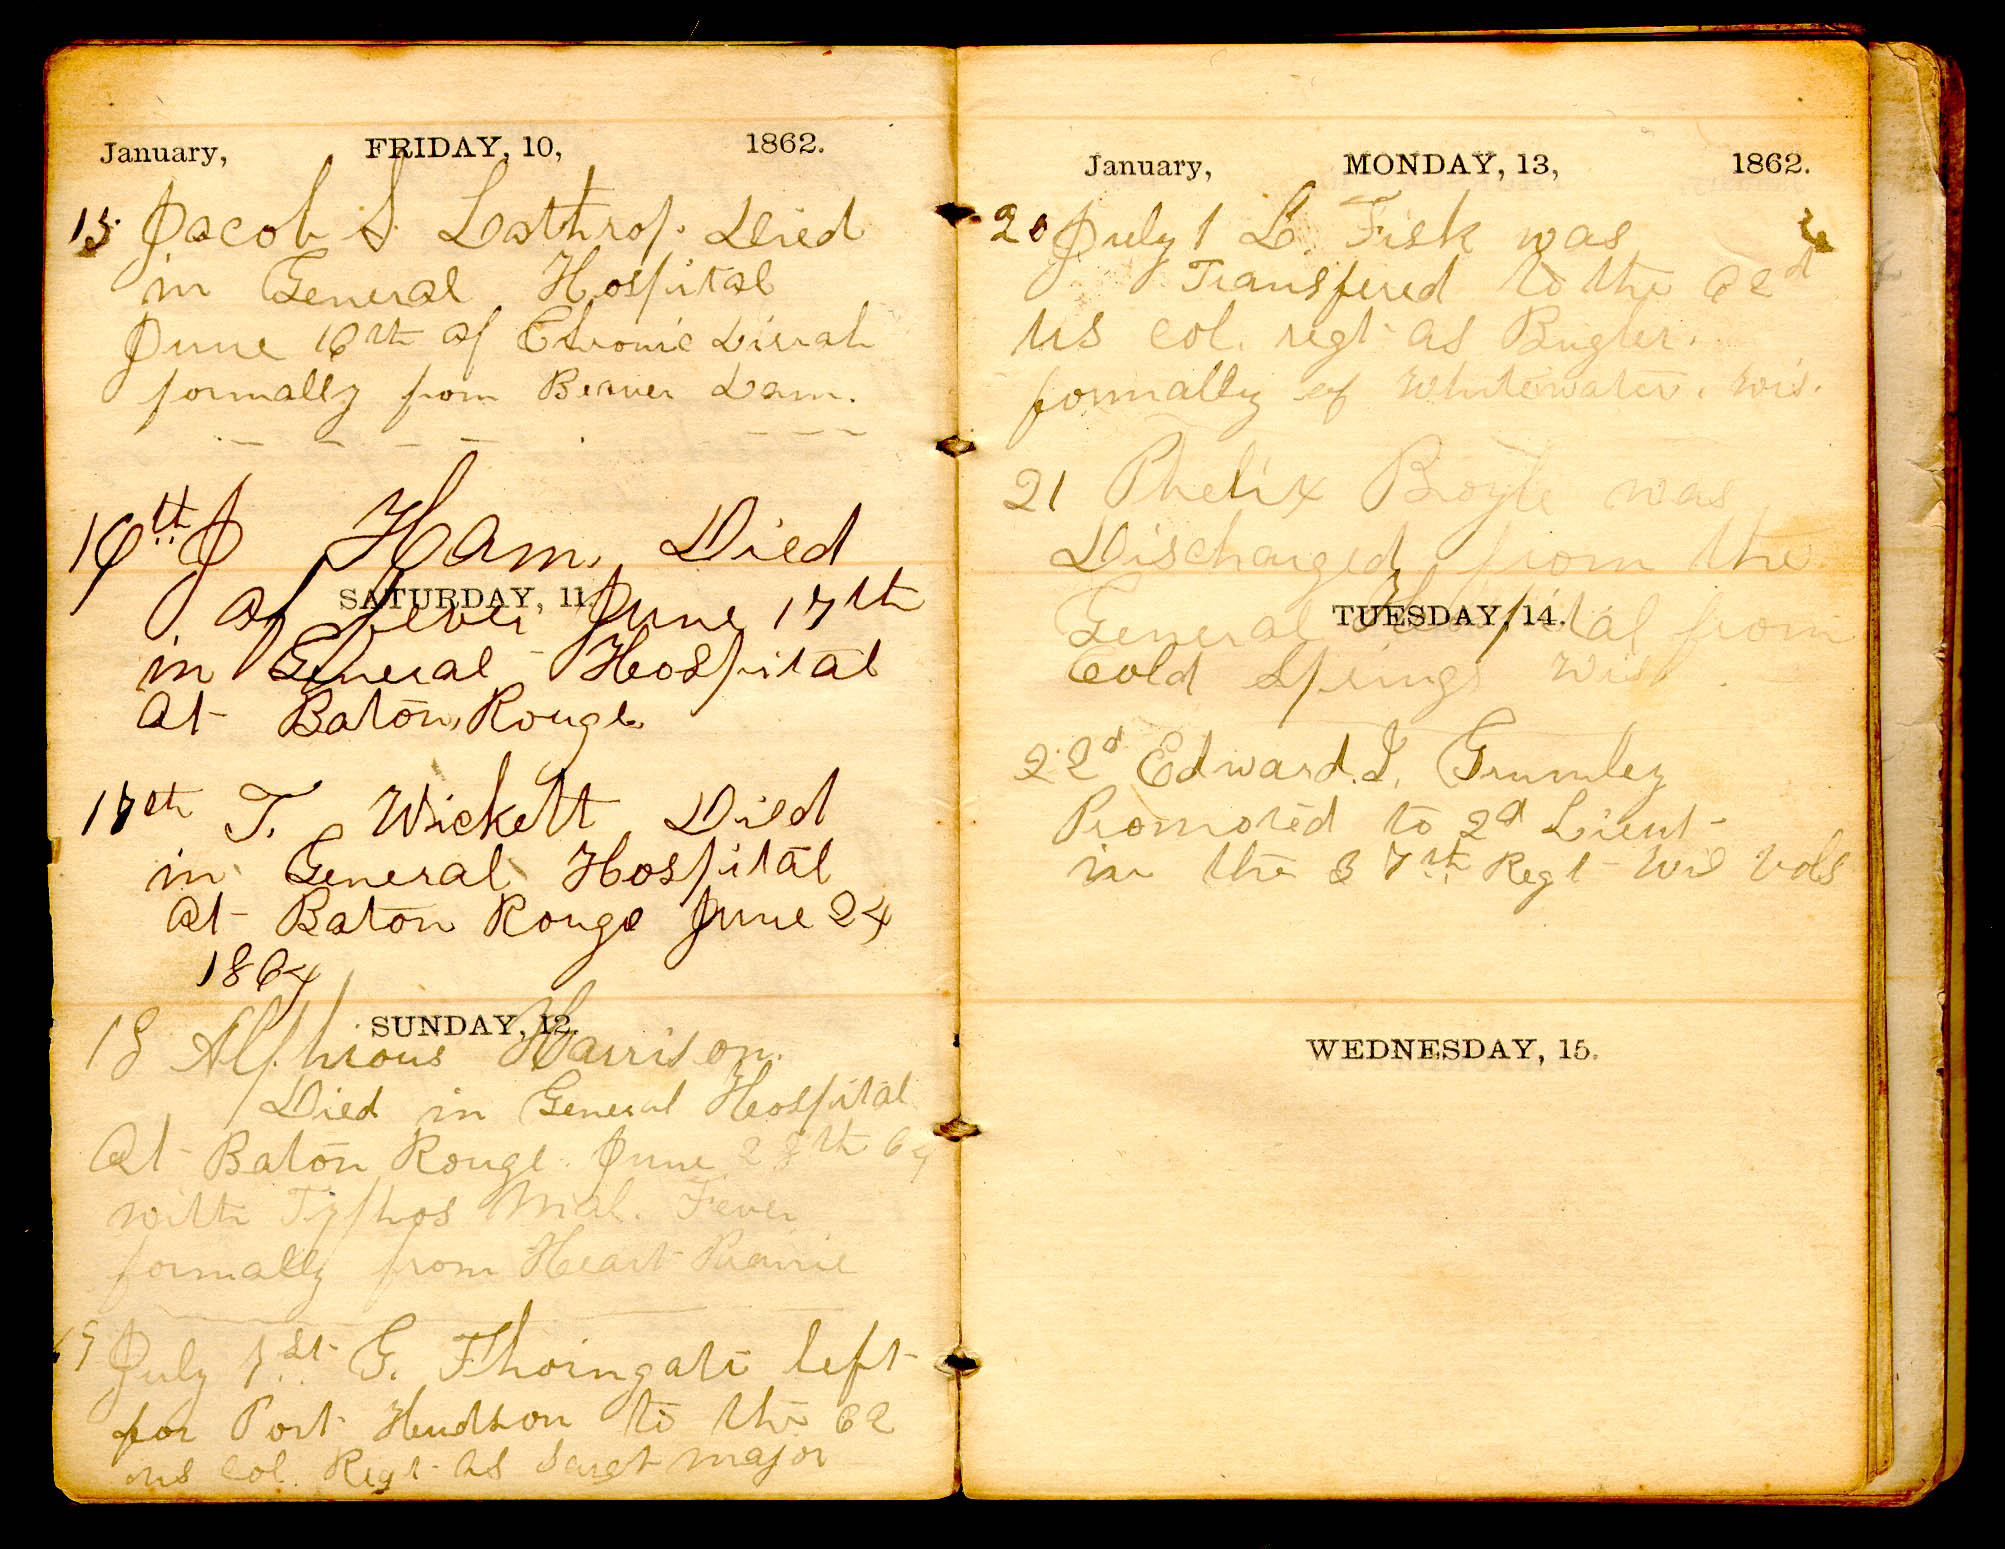 January, FRIDAY, 10, 1862.
15 Jacob S. Lathrop. Died
in General Hospital
June 16th of Chronic Dierah
formally from Beaver Dam.
16th J Ham. Died
SATURDAY, 11.
of fever June 17th
in General Hospital
at Baton Rouge
17th T. Wickett Died
in General Hospital
at Baton Rouge June 24
1864
SUNDAY, 12.
18 Alphious Harrison.
Died in General Hospital
at Baton Rouge June 28th 64
with Typhos Mal. Fever
formally from Heart Prairie
19 July 1st G. Thorngate left
for Port Hudson to the 62
us Col. Regt as Sargt major
January, MONDAY, 13, 1862.
20 July 1 L. Fisk was
Transfered to the 62d
US col. regt as Bugler.
formally of Whitewater. Wis.
21 Phelix Boyle was
Discharged from the
TUESDAY, 14.
General Hospital from
Cold Springs Wis.
22d Edward. I. Grumley
Promoted to 2d Lieut
in the 37th Regt Wis Vols
WEDNESDAY, 15.